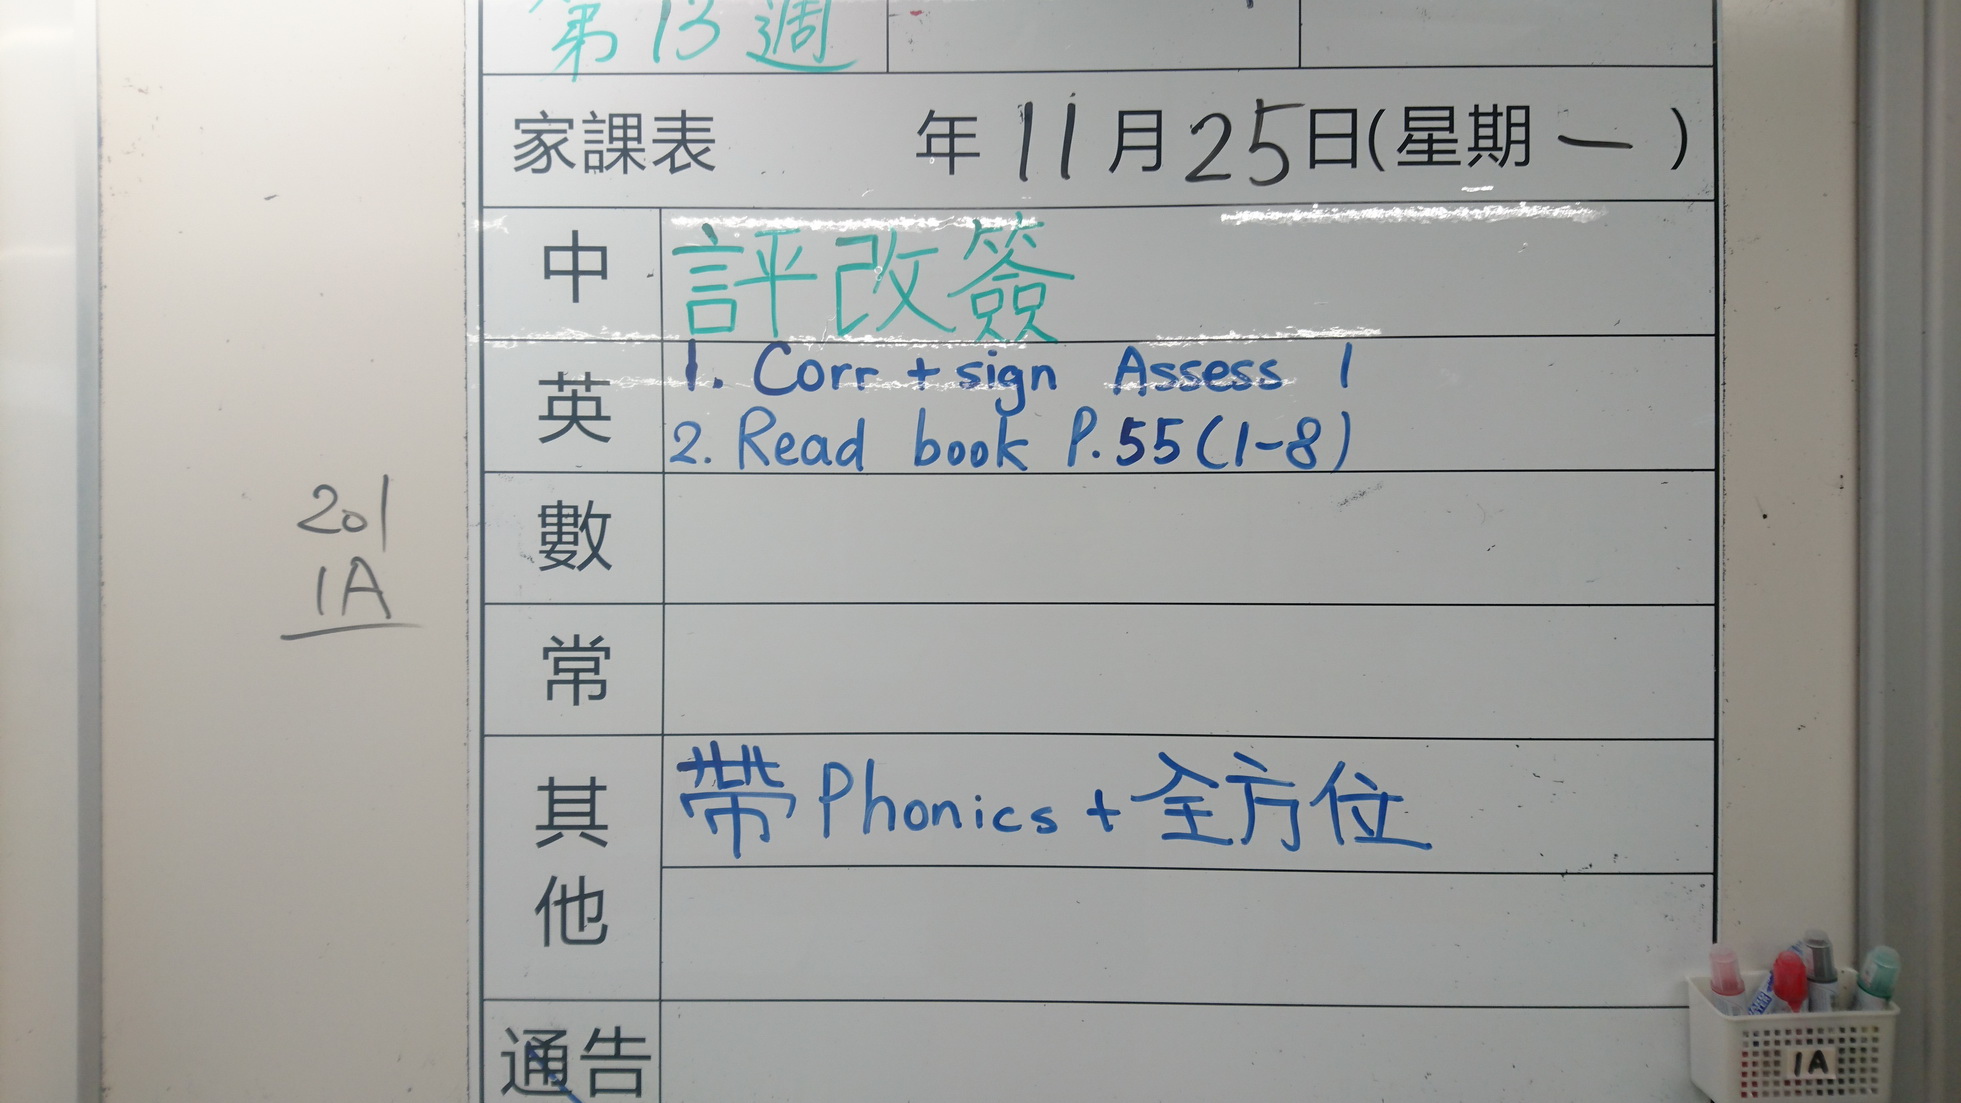 第13週
家課表 年11月25日(星期一)
中 評改簽
英 1. Corr + sign Assess 1
2. Read book P.55(1-8)
數
201
1A
常
其他 帶Phonics + 全方位
通告
1A